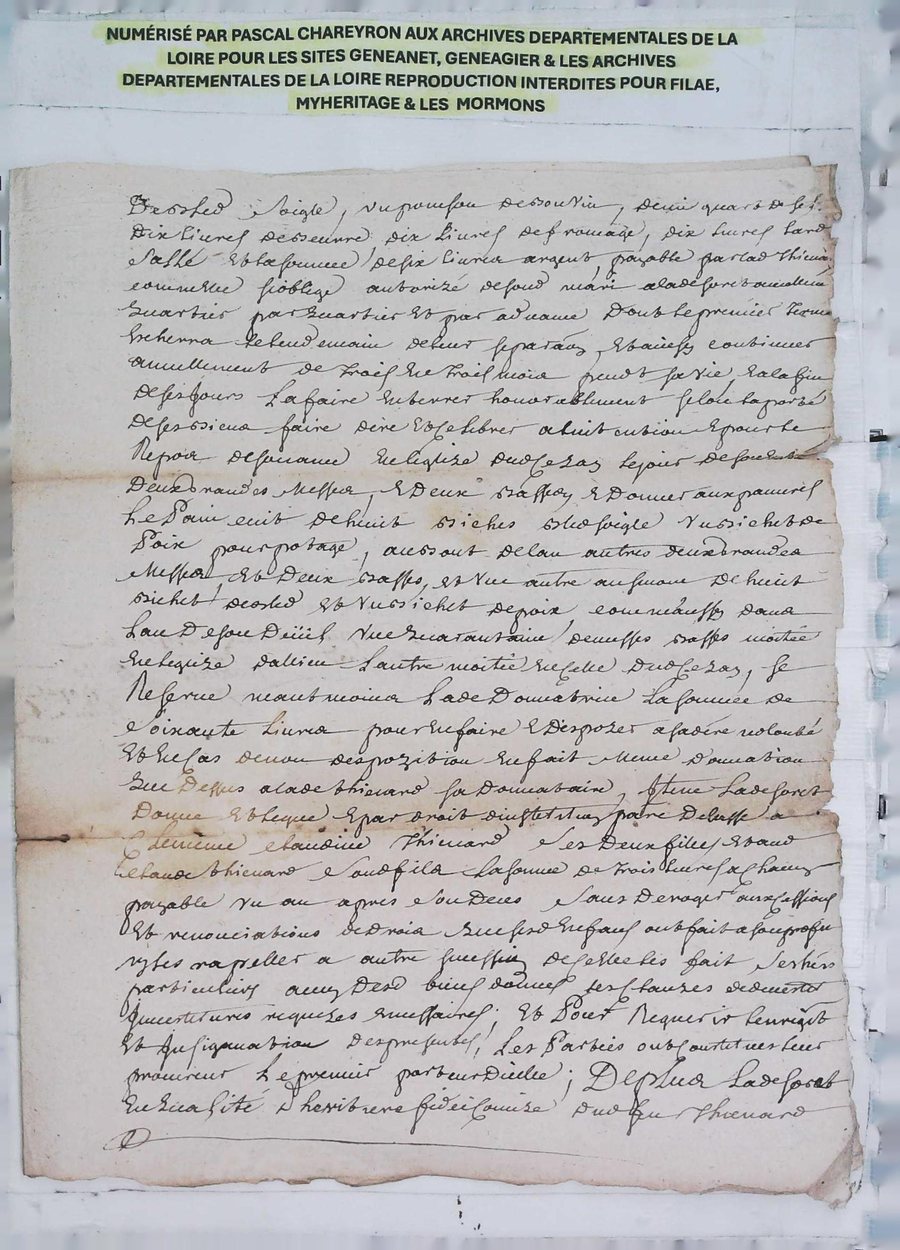 NUMÉRISÉ PAR PASCAL CHAREYRON AUX ARCHIVES DEPARTEMENTALES DE LA
LOIRE POUR LES SITES GENEANET, GENEAGIER & LES ARCHIVES
DEPARTEMENTALES DE LA LOIRE REPRODUCTION INTERDITES POUR FILAE,
MYHERITAGE & LES MORMONS
soigle, un ponson de son vin, demi quart de sel
Dix Livres de beurre dix Livres de fromage, dix livres lard
Sallé Et la somme de six livres argent payable par lad thiena
comme elle s'oblige autorizé de sond mari a lad
quartier par quartier Et par advance Dont le premier terme
Echerra le lendemain de leur separaon, Et ainsy continuer
annuellement de trois En trois mois pendt sa vie, Ea la fin
de ses jours La faire Enterrer honorablement selon la porté
de ses biens faire dire Et celebrer a son intention E pour le
Repos de son ame En l'eglize dud Cezay le jour de son
Deux grandes Messes, E Deux basses E Donner aux pauvres
Le Pain cuit de huit bichets bled soigle Un bichet de
Poix pour potage, au bout de l'an autres deux grandes
Messes Et Deux basses, et Une autre aumone de huit
bichet de bled et Un bichet de poix comme aussy dans
L'an De son Deüil Une Quarantaine de messes basses moitié
En l'eglize d'allieu L'autre moitié En Celle dud Cezay, se
Reserve neantmoins Lade Donnatrice La somme de
Soixante Livres pour En faire E Dispozer a sa dere volonté
Et En Cas de non dispozition En fait Meme Donnation
Que Dessus a lade thienard sa Donnataire, Item Lade
Donne Et legue E par droit d'institution a
Clemence Claudine Thienard Ses Deux filles Et aud
Claude thienard Son fils La somme de Trois livres a Chacun
payable Un an apres Son Deces Sans Deroger aux Cessions
Et renonciations de droits Que sesd Enfans ont fait a son profit
a autre de Celle les fait Ses hers
particuliers desd biens donnés les Clauzes de
Investitures requizes necessaires; Et Pour Requerir l'enregt
Et Insignuation des presentes, Les Parties ont constitué leur
procureur Le premier porteur D'icelle; De plus Lade
En Qualité d'heritiere fideicomize dud feu Thienard